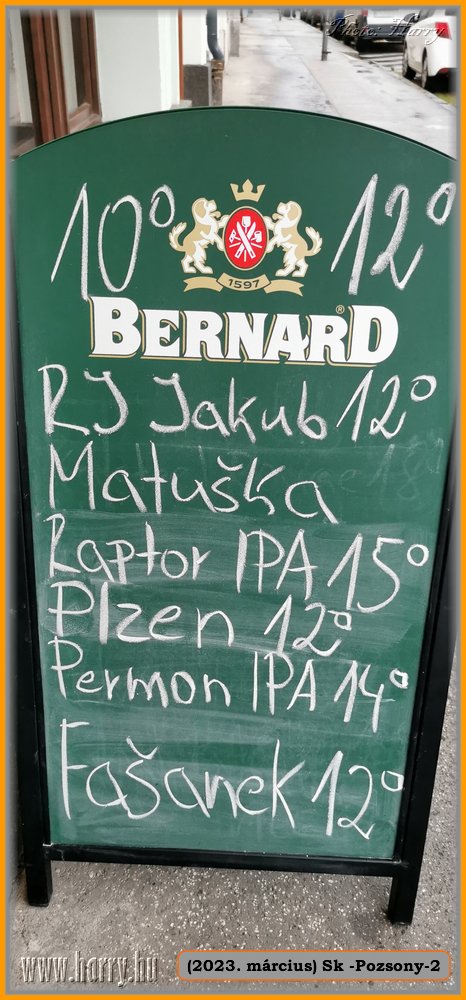 Photo: Harry
10° 12°
1597
BERNARD®
RJ Jakub 12°
Matuška
Raptor IPA 15°
Plzen 12°
Permon IPA 14°
Fašanek 12°
www.harry.hu
(2023. március) Sk -Pozsony-2